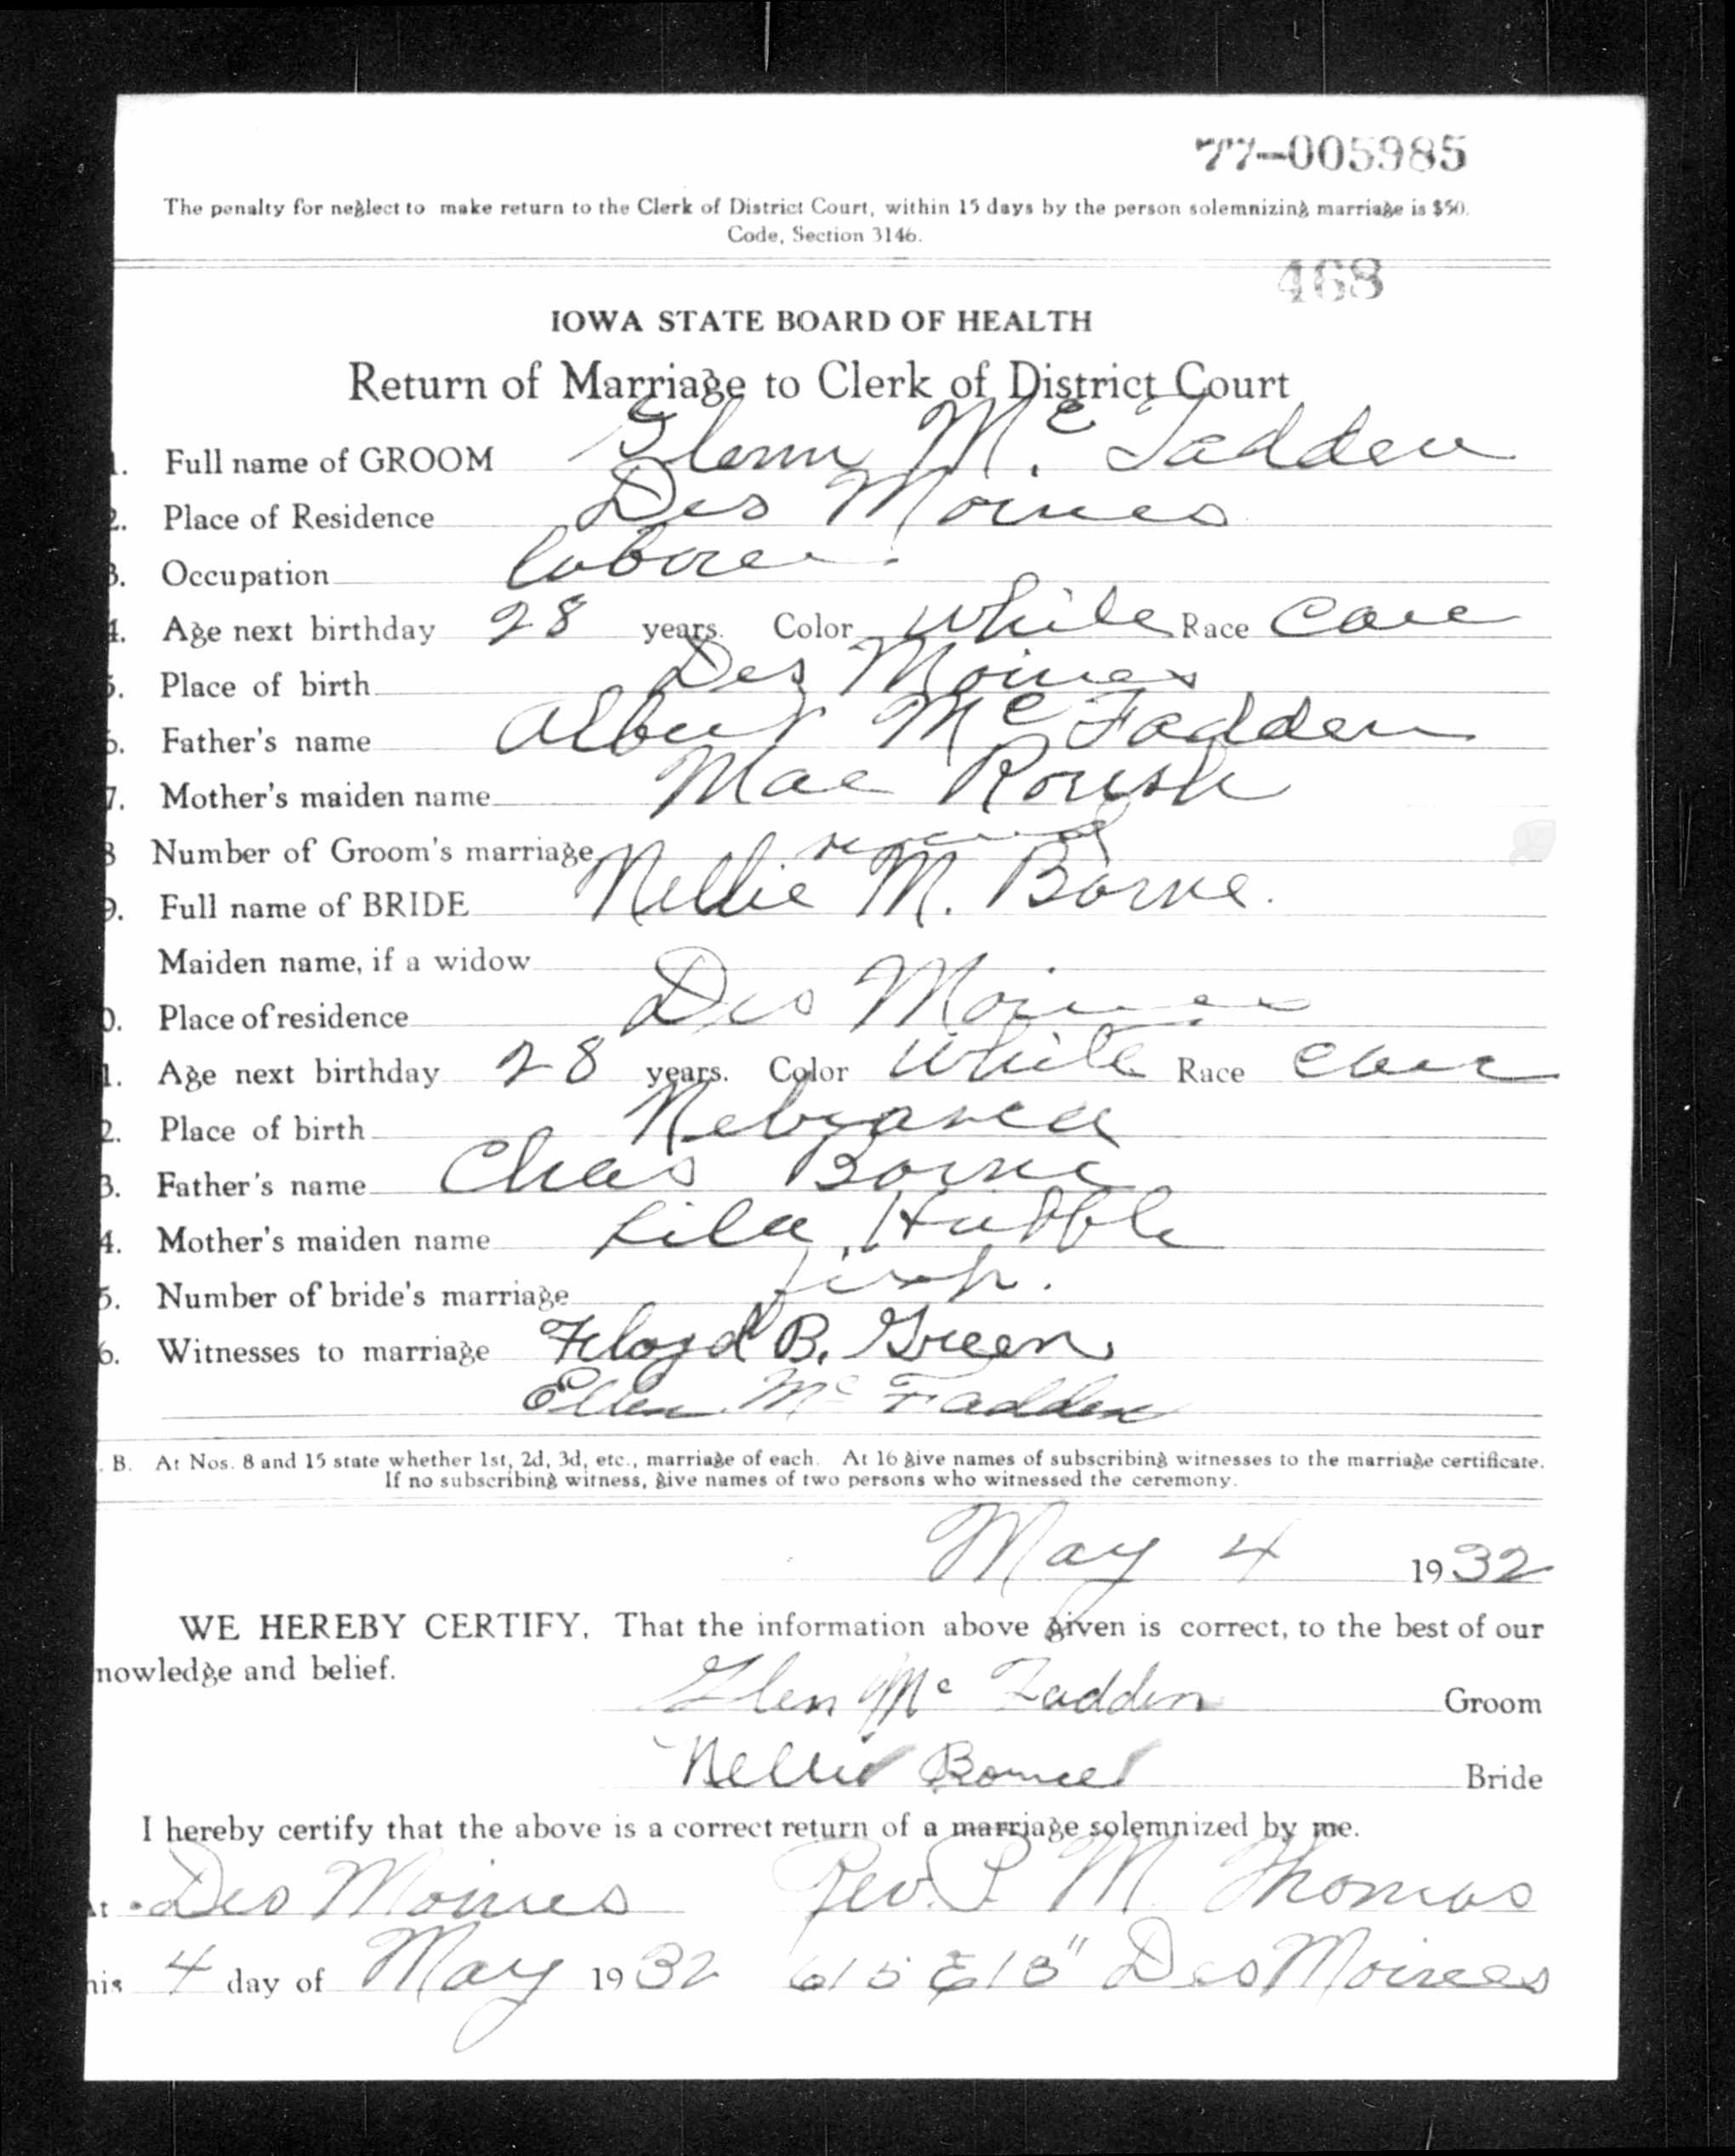 77-005985
The penalty for neglect to make return to the Clerk of District Court, within 15 days by the person solemnizing marriage is $50.
Code, Section 3146.
468
IOWA STATE BOARD OF HEALTH
Return of Marriage to Clerk of District Court
1. Full name of GROOM Glenn Mc Fadden
2. Place of Residence Des Moines
3. Occupation laborer
4. Age next birthday 28 years. Color White Race Cauc
5. Place of birth Des Moines
6. Father's name Albert Mc Fadden
7. Mother's maiden name Mae Roush
8 Number of Groom's marriage second
9. Full name of BRIDE Nellie M. Borne.
Maiden name, if a widow
0. Place of residence Des Moines
1. Age next birthday 28 years. Color White Race Cauc
2. Place of birth Nebraska
3. Father's name Chas Borne
4. Mother's maiden name Lila Hubble
5. Number of bride's marriage first.
6. Witnesses to marriage Floyd B. Green
Ellen Mc Fadden
. B. At Nos. 8 and 15 state whether 1st, 2d, 3d, etc., marriage of each. At 16 give names of subscribing witnesses to the marriage certificate.
If no subscribing witness, give names of two persons who witnessed the ceremony.
May 4 1932
WE HEREBY CERTIFY, That the information above given is correct, to the best of our
nowledge and belief.
Glen Mc Fadden Groom
Nellie Bride
I hereby certify that the above is a correct return of a marriage solemnized by me.
At Des Moines Rev. M Thomas
his 4 day of May 1932 615 E 13" Des Moines